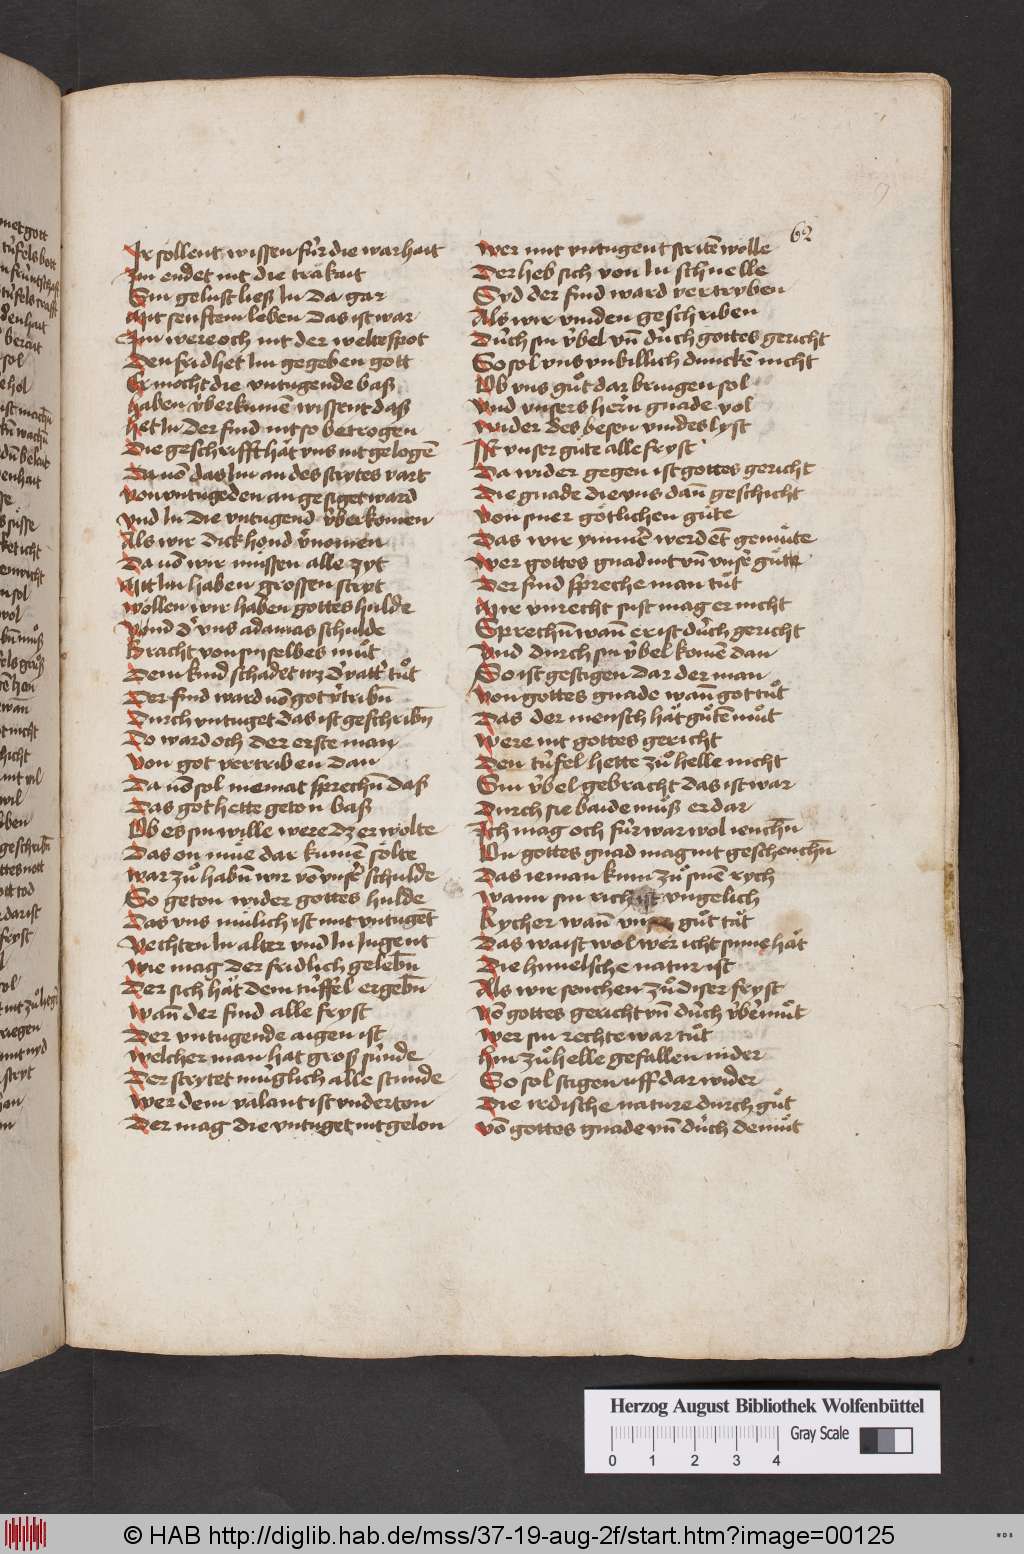 62
Ir sollent wissen fúr die warhait
Im endet nit die träkait
Sin gelust ließ In da gar
Mit senftem leben das ist war
Im were och nit der welte spot
Den frid het Im gegeben gott
Er mocht die vntugende baß
haben v̓berkumē wissent daß
het In der find nit so betrogen
Die geschrifft hät vns nit gelogē
Da vō das Im an des strytes vart
von vntugēden an gesiget ward
vnd In die vntugend v̓berkomen
Als wir dick hond v̓nomen
Da vō wir müssen alle zyt
Mit Im haben grossen stryt
wöllen wir haben gottes hulde
vnnd d̓ vns adamas schulde
Bracht von sin selbes můt
Dem kind schadet wz d̓ vatt̓ tůt
Der find ward vō got v̓tribn̄
Durch vntuget das ist geschribn̄
Do ward och der erste man
von got vertriben dan
Da vō sol niemat sprechn̄ daß
Das got hette geton baß
Ob es sin wille were dz er wolte
Das on müe dar kumē sölte
war zů habn̄ wir vō vnser̓ schulde
So geton wider gottes hulde
Das vns mülich ist mit vntugēt
vechten In alter vnd In Iugent
wie mag der fridlich gelebn̄
Der sich hät dem tüffel ergebn̄
wañ der find alle fryst
Der vntugende aigen ist
welcher man hat groß súnde
Der strytet müglich alle stunde
wer dem valant ist vnderton
Der mag die vntuget nit gelon
wer mit vntugent stritē wölle
Der heb sich von In schnelle
Syd der find ward vertryben
Als wir vinden geschriben
Dúrch sin v̓bel vn̄ dúrch gottes gericht
So sol vns vnbillich dunckē nicht
Ob vns gůt dar bringen sol
vnd vnsers hern̄ gnade vol
wider des bösen vindes lyst
Ist vnser güte alle fryst
Da wider gegen ist gottes gericht
Die gnade die vns dañ geschicht
von siner götlichen güte
Das wir ymmer̓ werdēt gemüte
wer gottes gnad nit vn̄ vnser̓ güte
Der find spreche man tůt
Mir vnrecht sust mag er nicht
Sprechn̄ wañ er ist dúrch gericht
vnd durch sin v̓bel komē dan
So ist gestigen dar der man
von gottes gnade wañ got tůt
Das der mensch hät gůtē můt
were nit gottes gericht
Den túfel hette zů helle nicht
Sin v̓bel gebracht das ist war
Durch sie baide můß er dar
Ich mag och fúr war wol iench̄n
On gottes gnad mag nit geschench̄n
Das ieman kum zů sinē rych
wann sin rich ist vngelich
Rycher wañ gůt tät
Das waist wol wer icht sinne hät
Die himelsche natur ist
Als wir senchen zů diser fryst
vō gottes gericht vn̄ dúrch v̓bermůt
wer sin rechte war tůt
hin zů helle gefallen nider
So sol stigen vff dar wider
Die irdische nature durch gůt
vō gottes gnade vn̄ dúrch demůt
Herzog August Bibliothek Wolfenbüttel
Gray Scale
0 1 2 3 4
© HAB http://diglib.hab.de/mss/37-19-aug-2f/start.htm?image=00125